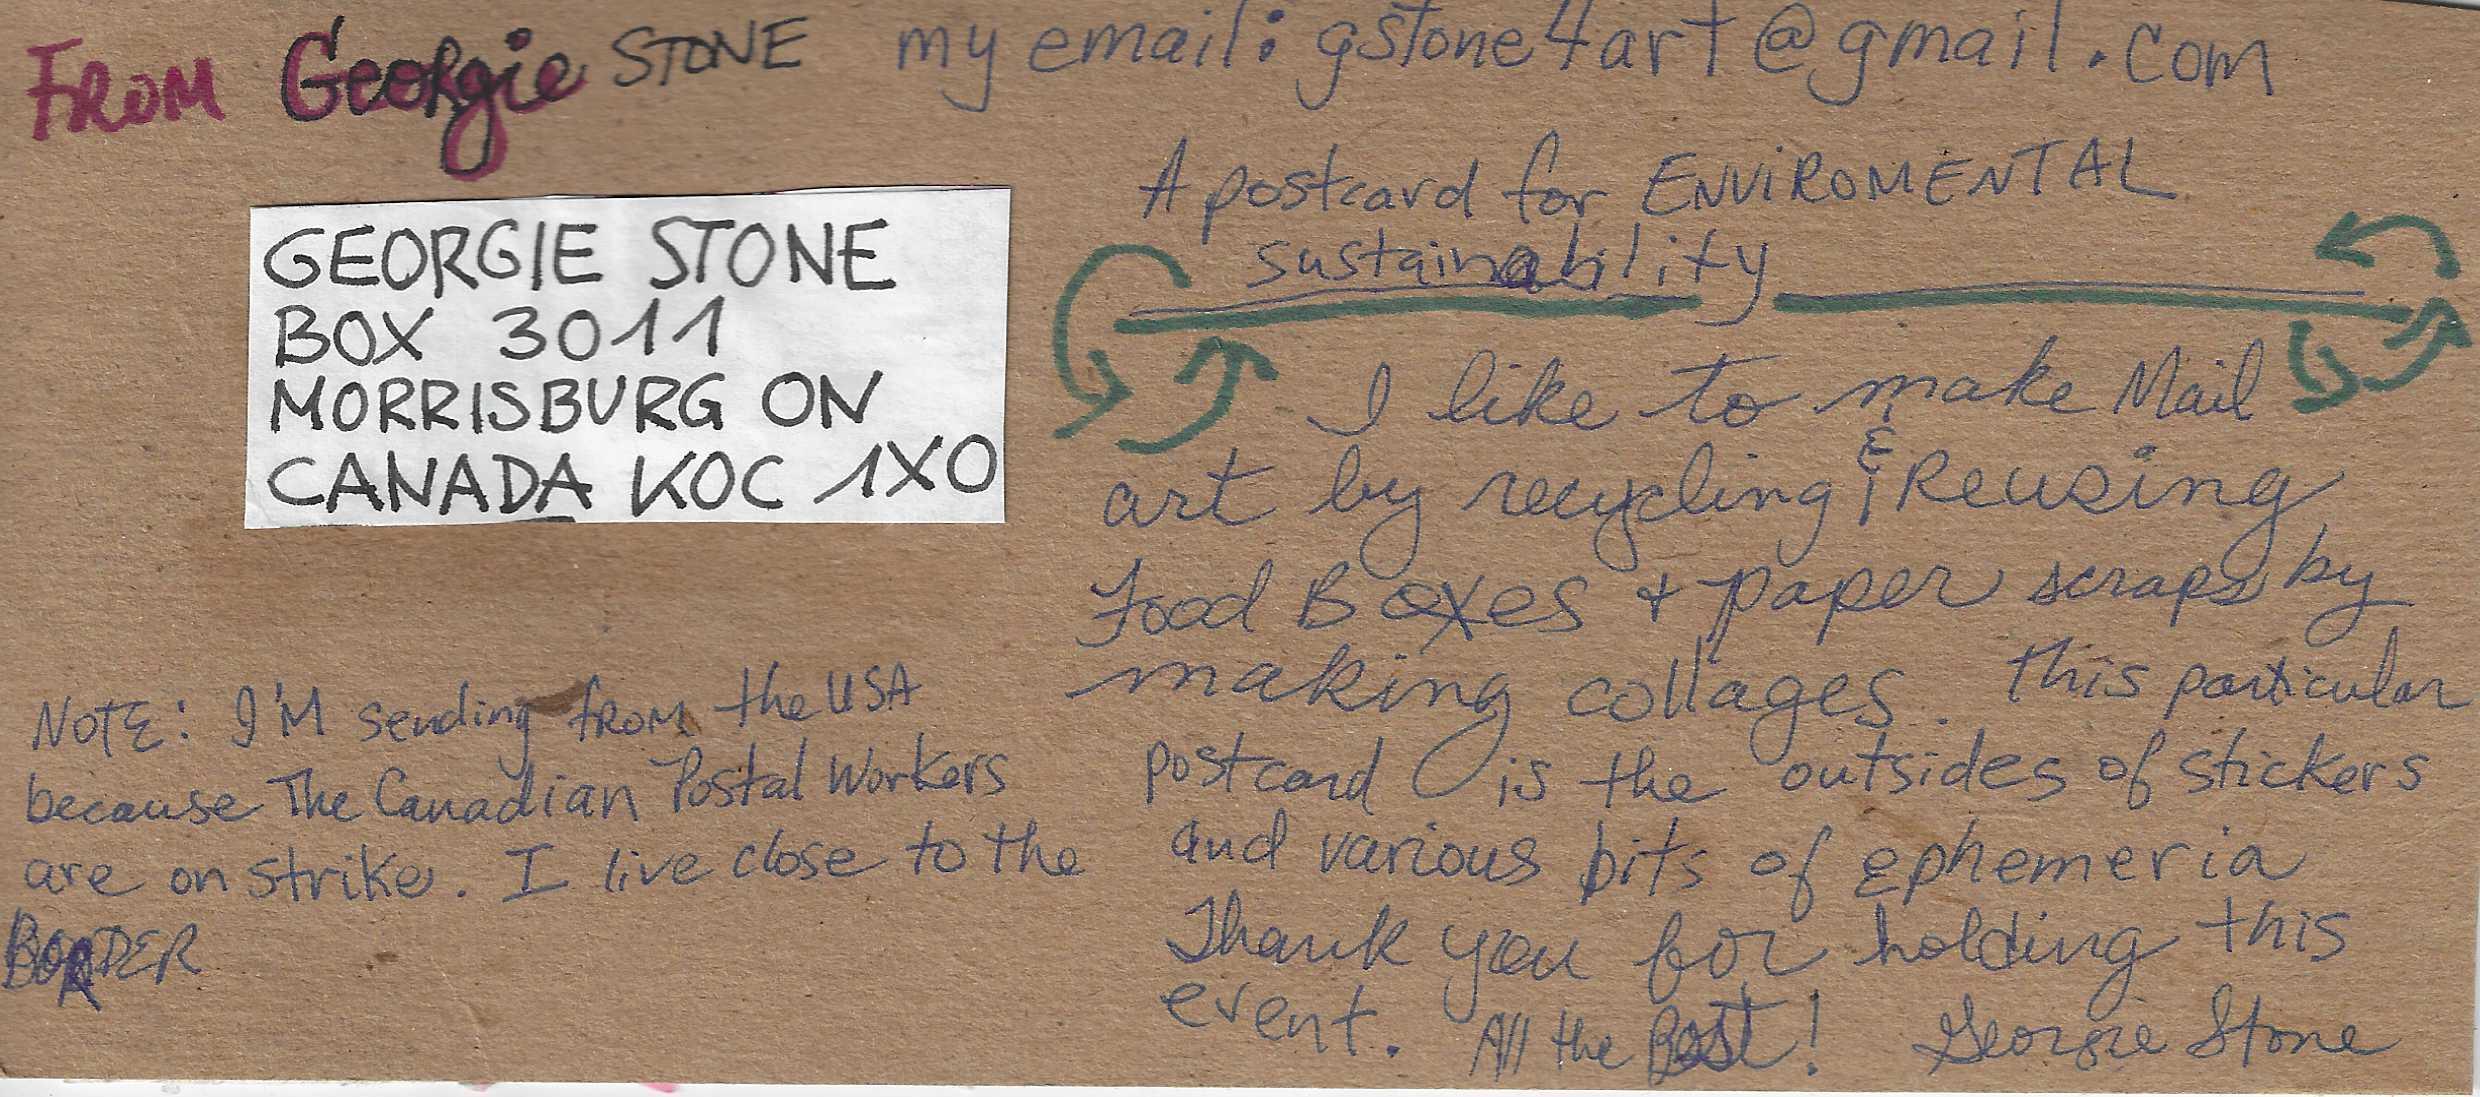 FROM Georgie STONE my email: gstone4art@gmail.com
GEORGIE STONE
BOX 3011
MORRISBURG ON
CANADA K0C 1X0
NOTE: I'M sending from the USA
because The Canadian Postal Workers
are on strike. I live close to the
BORDER
A postcard for ENVIROMENTAL
sustainability
I like to make Mail
art by recycling & Reusing
Food Boxes + paper scraps by
making collages. This particular
postcard is the outsides of stickers
and various bits of ephemeria
Thank you for holding this
event. All the Best! Georgie Stone